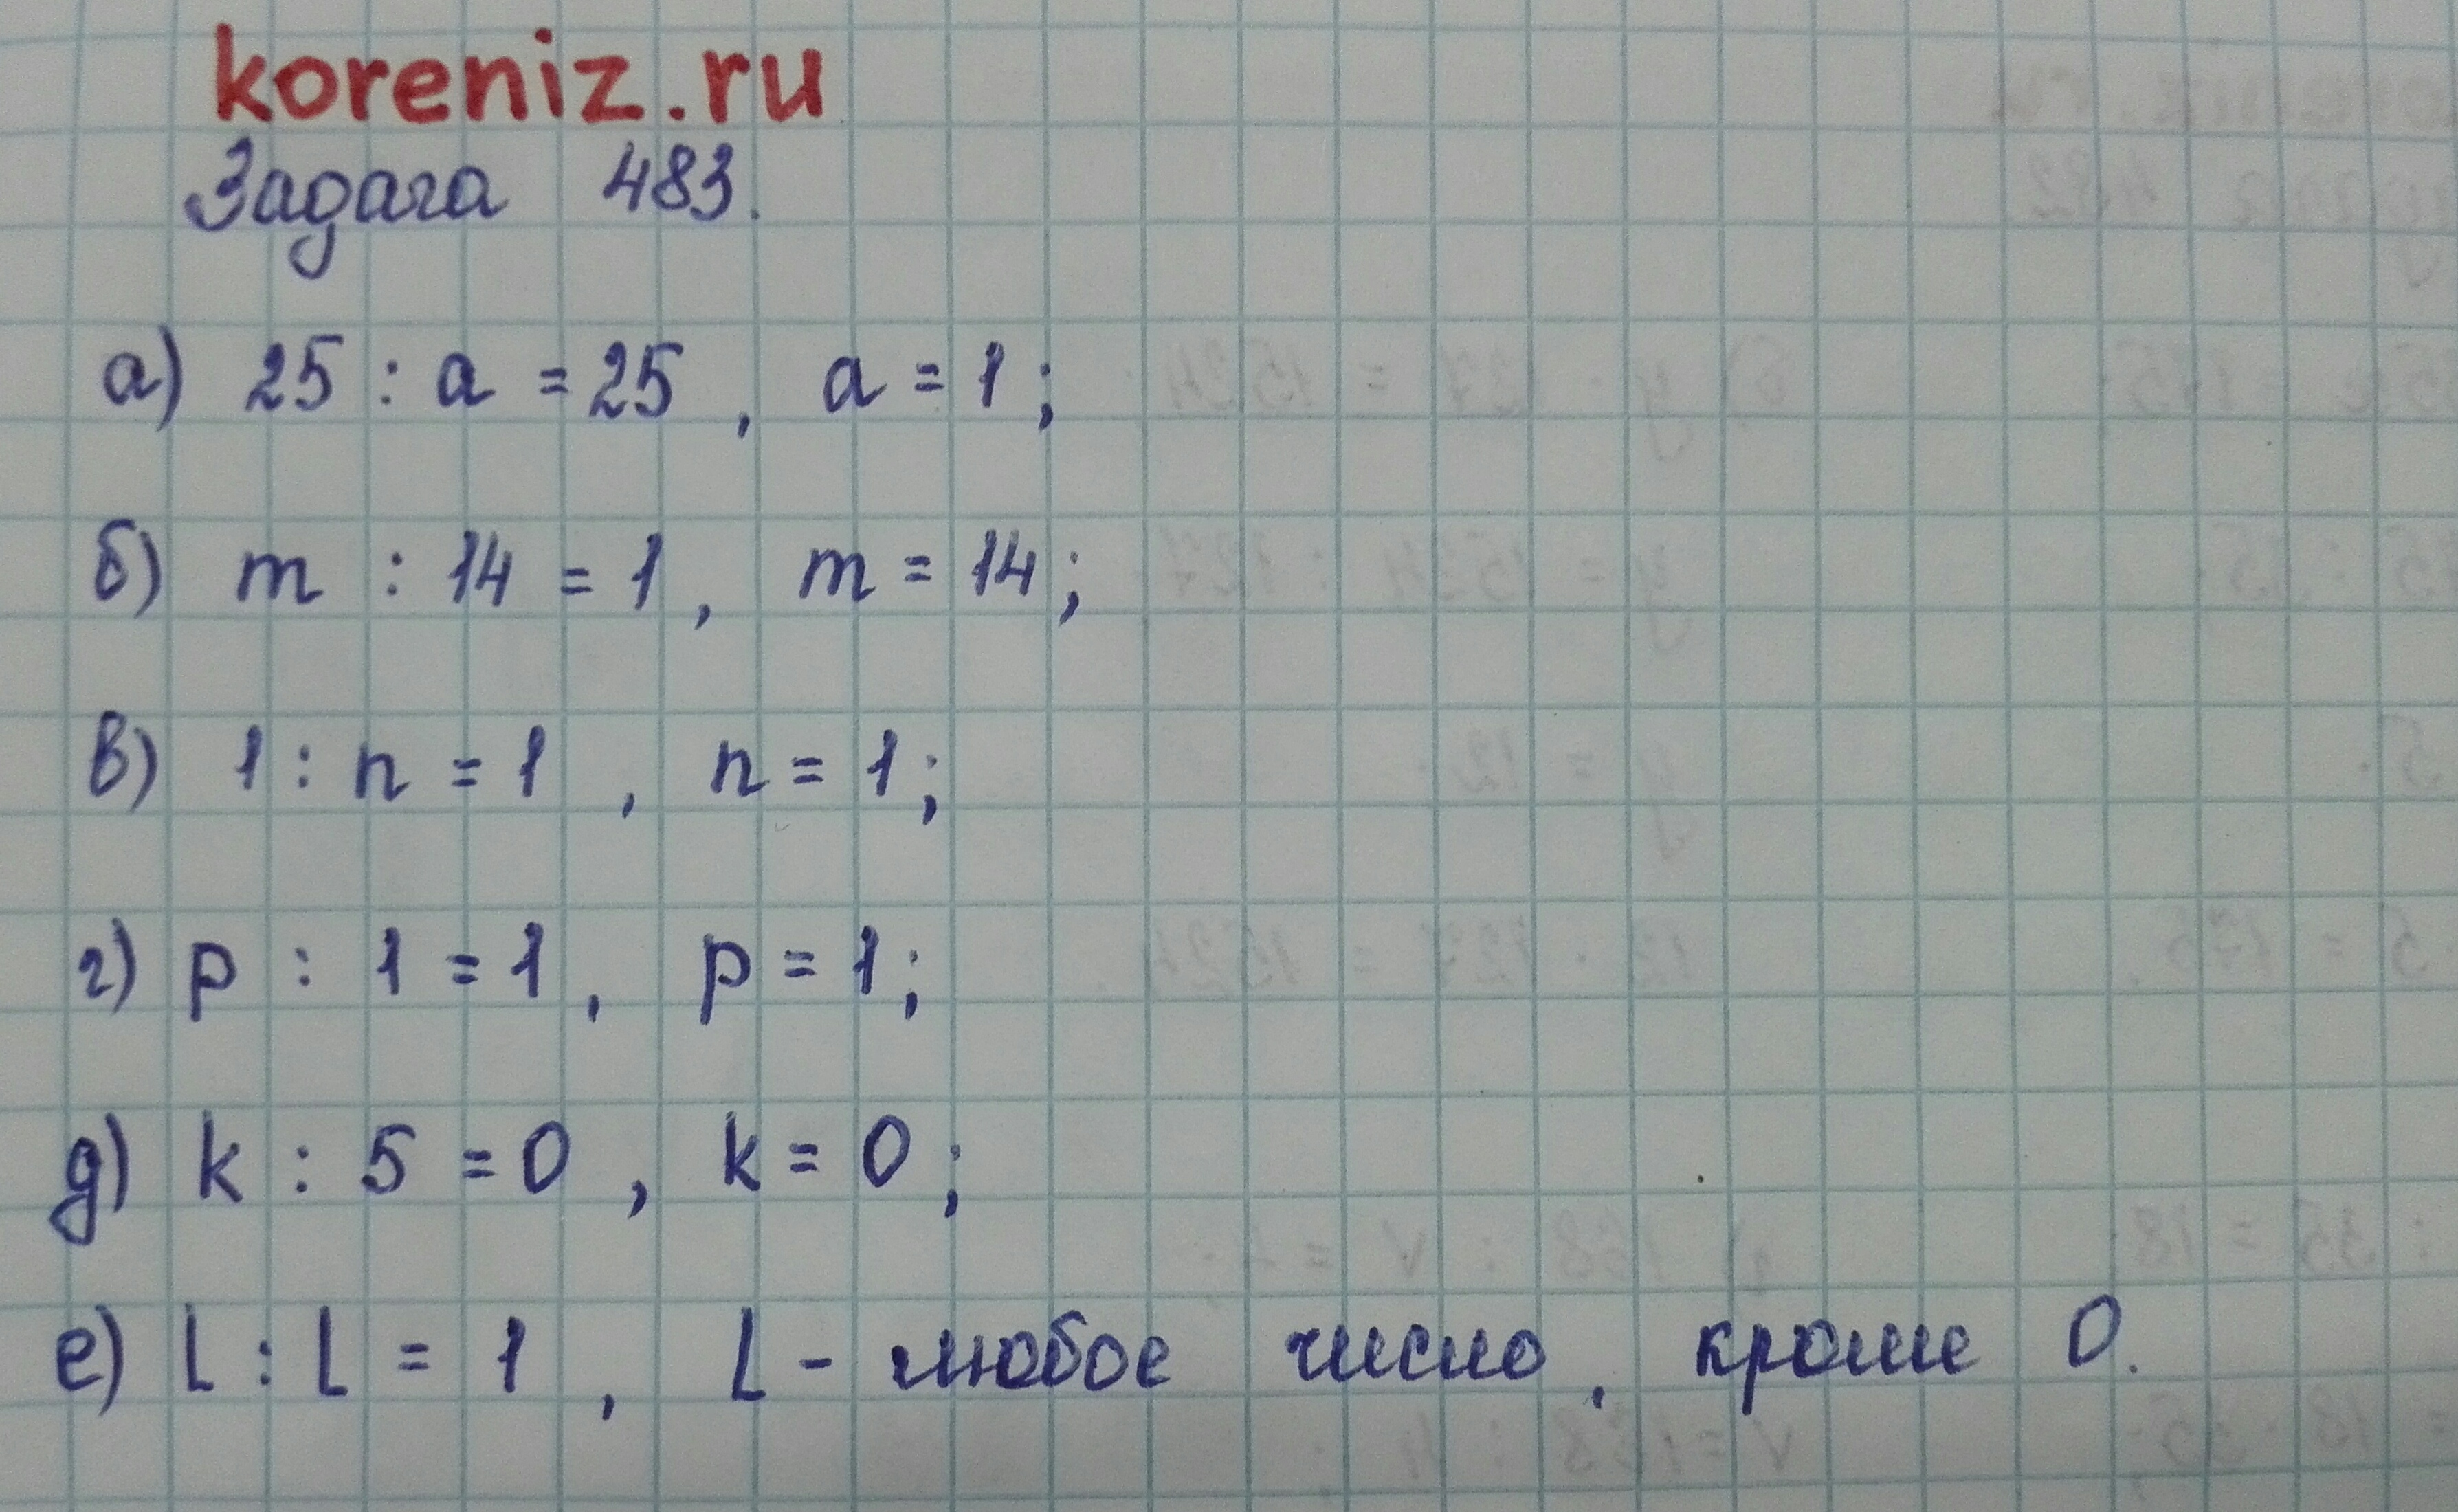 koreniz.ru
Задача 483.
а) 25 : a = 25 , a = 1 ;
б) m : 14 = 1 , m = 14 ;
в) 1 : n = 1 , n = 1 ;
г) p : 1 = 1 , p = 1 ;
д) k : 5 = 0 , k = 0 ;
е) L : L = 1 , L - любое число , кроме 0.